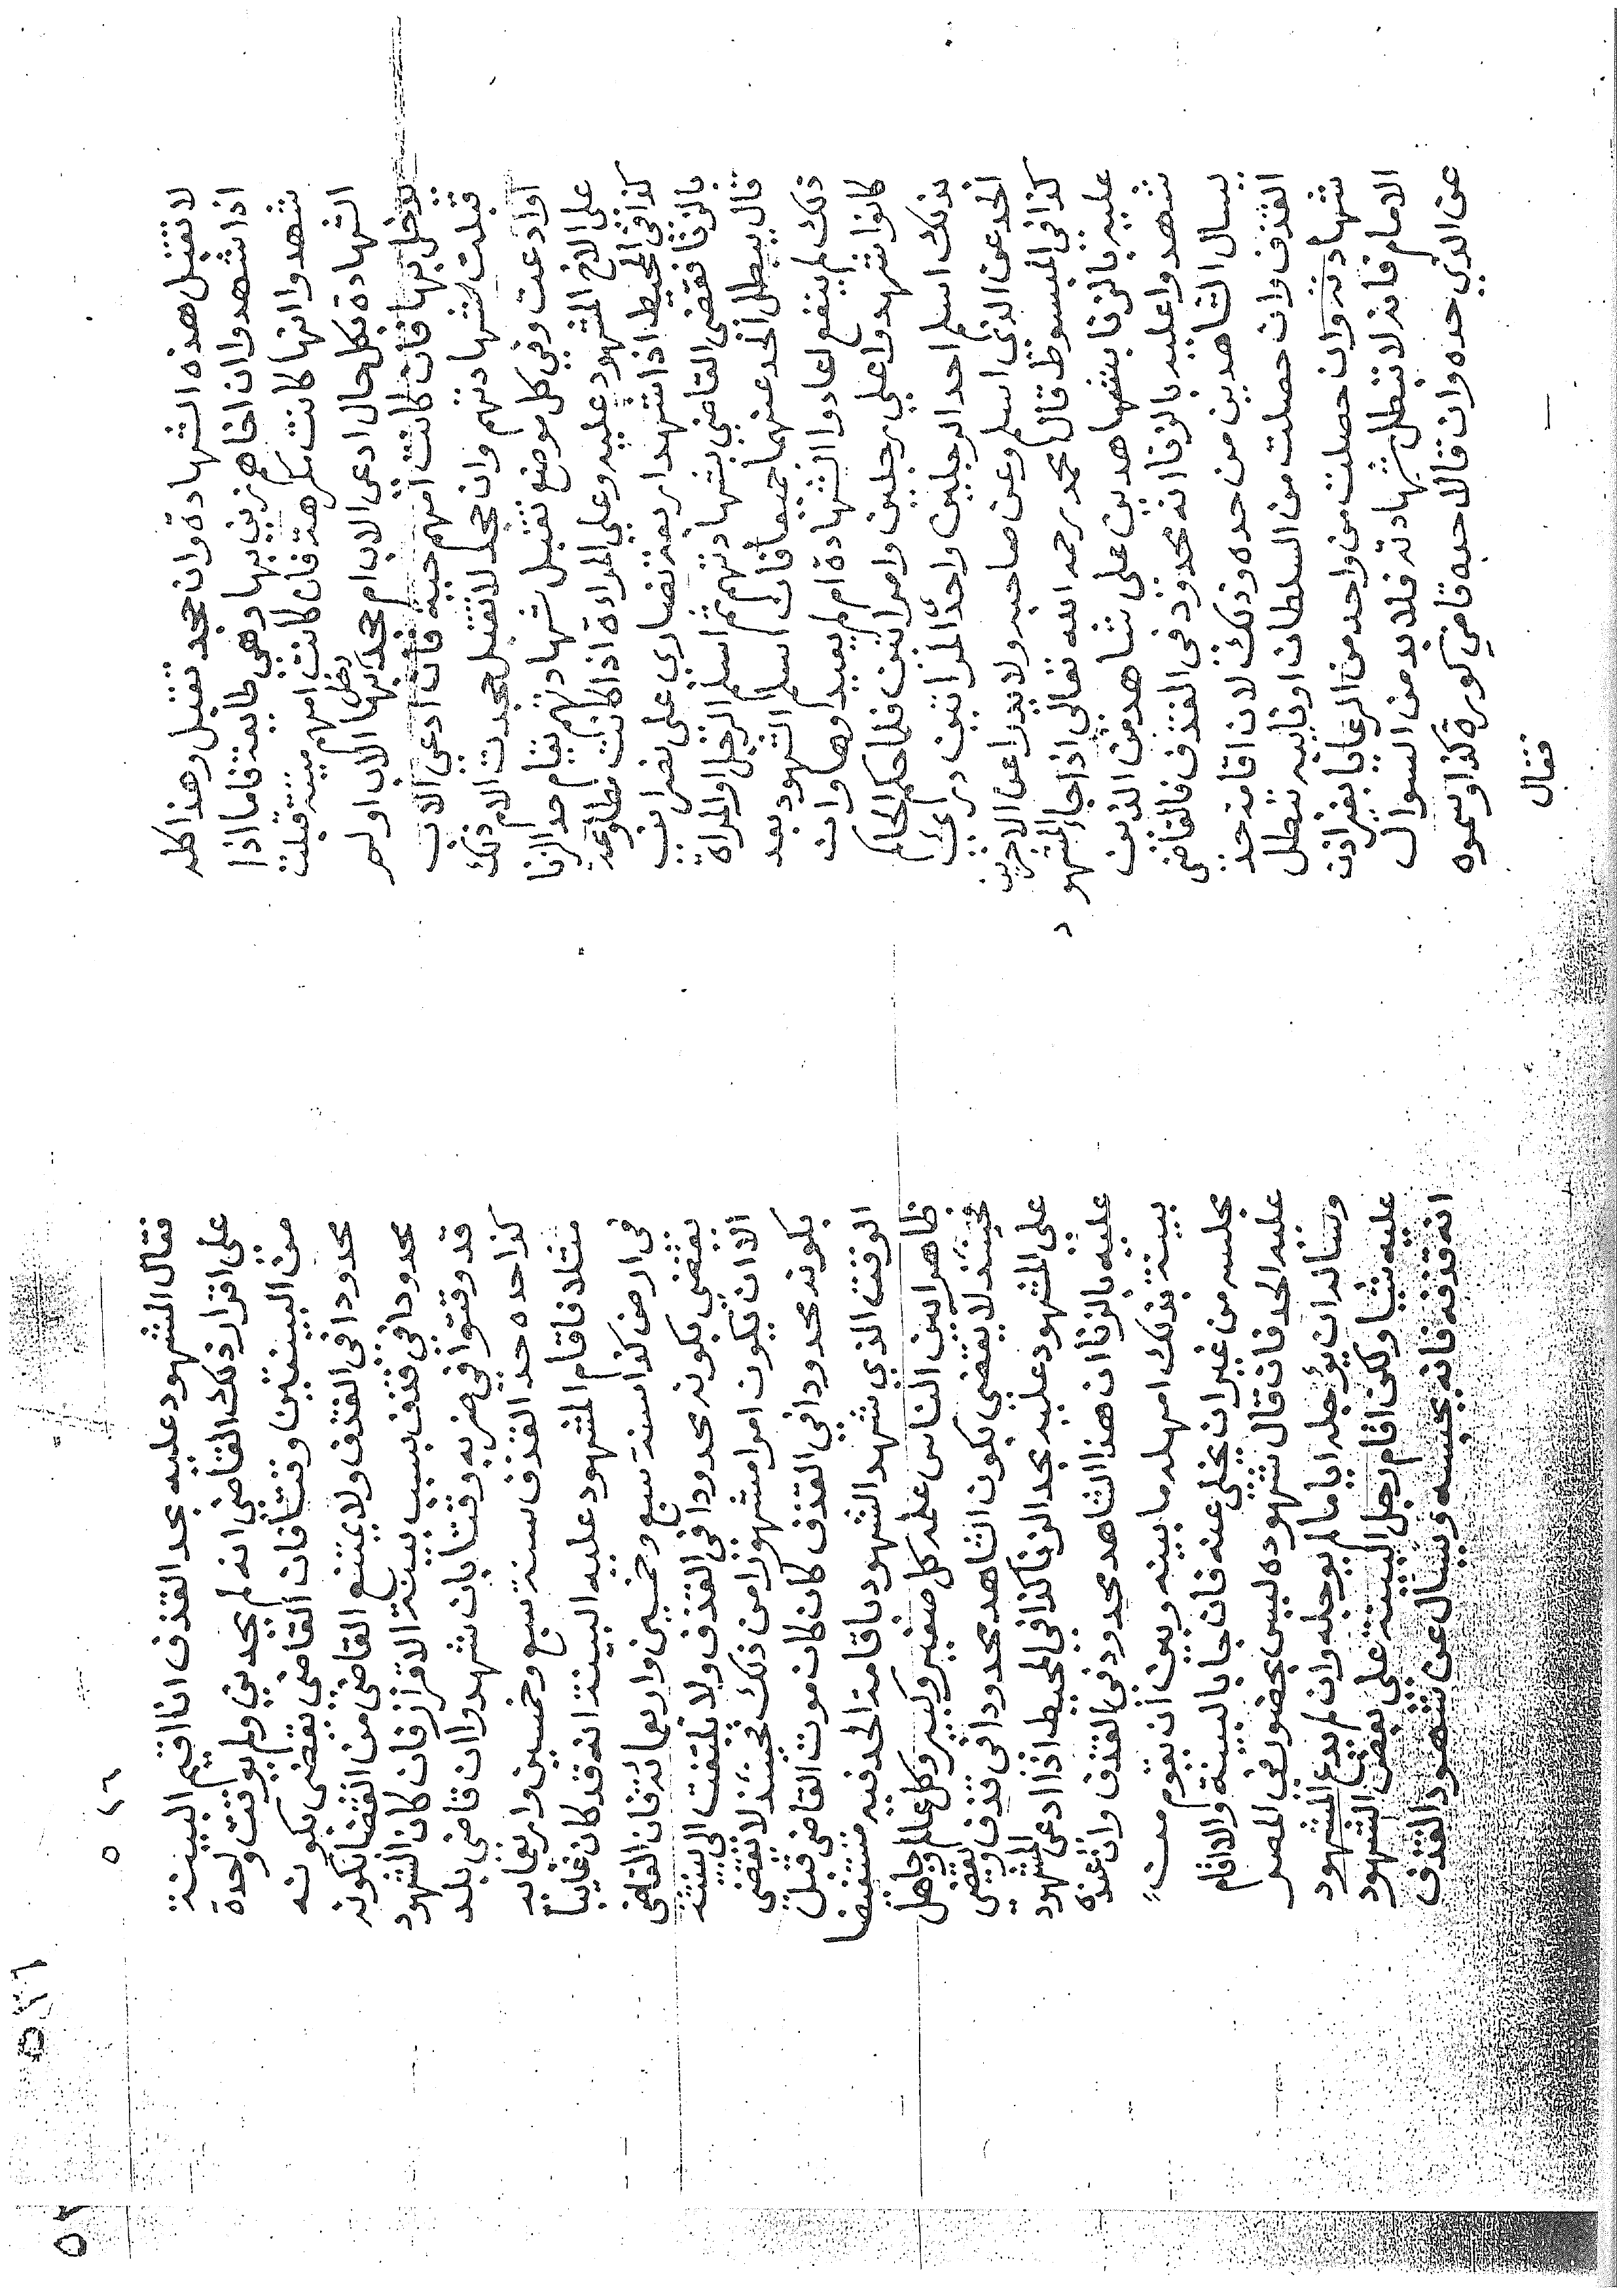 لا تقبل هذه الشهادة وان جحد تقبل وهذا كله
اذا شهدوا ان اخاهم زني بها وهي طايعة فاما اذا
شهدوا انها كانت مكرهة فان كانت امهم ميتة قبلت
الشهادة بكل حال ادعى الاب ام جحد دخل بها الاب او لم
يدخل بها فان كانت امهم حية فان ادعى الاب
قبلت شهادتهم وان جحد لا تقبل جحدت الام ذلك
او ادعت وفي كل موضع تقبل شهادتهم يقام حد الزنا
على الاخ المشهود عليه وعلي المراة اذا كانت مطاوعة
كذا في المحيط اذا شهد اربعة نصارى على نصرانيين
بالزنا فقضى القاضي بشهادتهم ثم اسلم الرجل او المراة
قال يبطل الحد عنهما جميعا فان اسلم الشهود بعد
ذلك لم ينفع اعادوا الشهادة ام لم يعيدوها وان
كانوا شهدوا علي رجلين وامراتين فلما حكم الحاكم
بذلك اسلم احد الرجلين واحد المراتين دراى
الحد عن الذي اسلم وعن صاحبه ولا يدرا عن الاخرين
كذا في المبسوط قال محمد رحمه الله تعالى اذا جاء المشهود
عليه بالزنا بشاهدين على شاهد من الذين
شهدوا عليه بالزنا انه محدود في القذف فالقاضي
يسال الشاهدين من حده وذلك لان اقامة حد
القذف وان حصلت من السلطان او نايبه تبطل
شهادته وان حصلت من واحد من الرعايا بغير اذن
الامام فانه لا تبطل شهادته فلا بد من السوال
عن الذي حده وان قالا حده قاضي كورة كذا وسموه
فقال
٥٢٦
فقال المشهود عليه بحد القذف انا اقيم البينة
على اقرار ذلك القاضي انه لم يحدني ولم يوقت واحدة
من البينتين وقتا فان القاضي يقضى بكونه
محدودا في القذف ولا يمتنع القاضي من القضا بكونه
محدودا في قذف بسبب بينة الاقرار فان كان الشهود
قد وقتوا في ضربه وقتا بان شهدوا ان قاضي بلد
كذا حده حد القذف سنة سبع وخمسين واربعماية
مثلا فاقام المشهود عليه البينة انه قد كان غايبا
في ارض كذا سنة سبع وخمسين واربعماية فان القاضي
يقضي بكونه محدودا في القذف ولا يلتفت الى البينة
الا ان يكون امرا مشهورا من ذلك فحينئذ لا يقضي
بكونه محدودا في القذف كان كان موت القاضي قبل
الوقت الذي شهد الشهود باقامة الحد فيه مستفيضا
ظاهرا بين الناس علمه كل صغير وكبير وكل عالم وجاهل
فحينئذ لا يقضي بكون الشاهد محدودا في قذف ويقضي
على المشهود عليه بحد الزنا كذا في المحيط اذا ادعى المشهود
عليه بالزنا ان هذا الشاهد محدود في القذف وان عنده
بينة بذلك امهله ما بينه وبين ان يقوم من
مجلسه من غير ان يخلى عنه فان جا بالبينة والا اقام
عليه الحد فان قال شهوده ليس بحضور في المصر
وسال ان يؤجله اياما لم يوجله وان لم يدع المشهود
عليه شيا ولكن اقام رجل البينة على بعض الشهود
انه قذفه فانه يحبسه ويسال عن شهود القذف
٥٢٦
٥٢